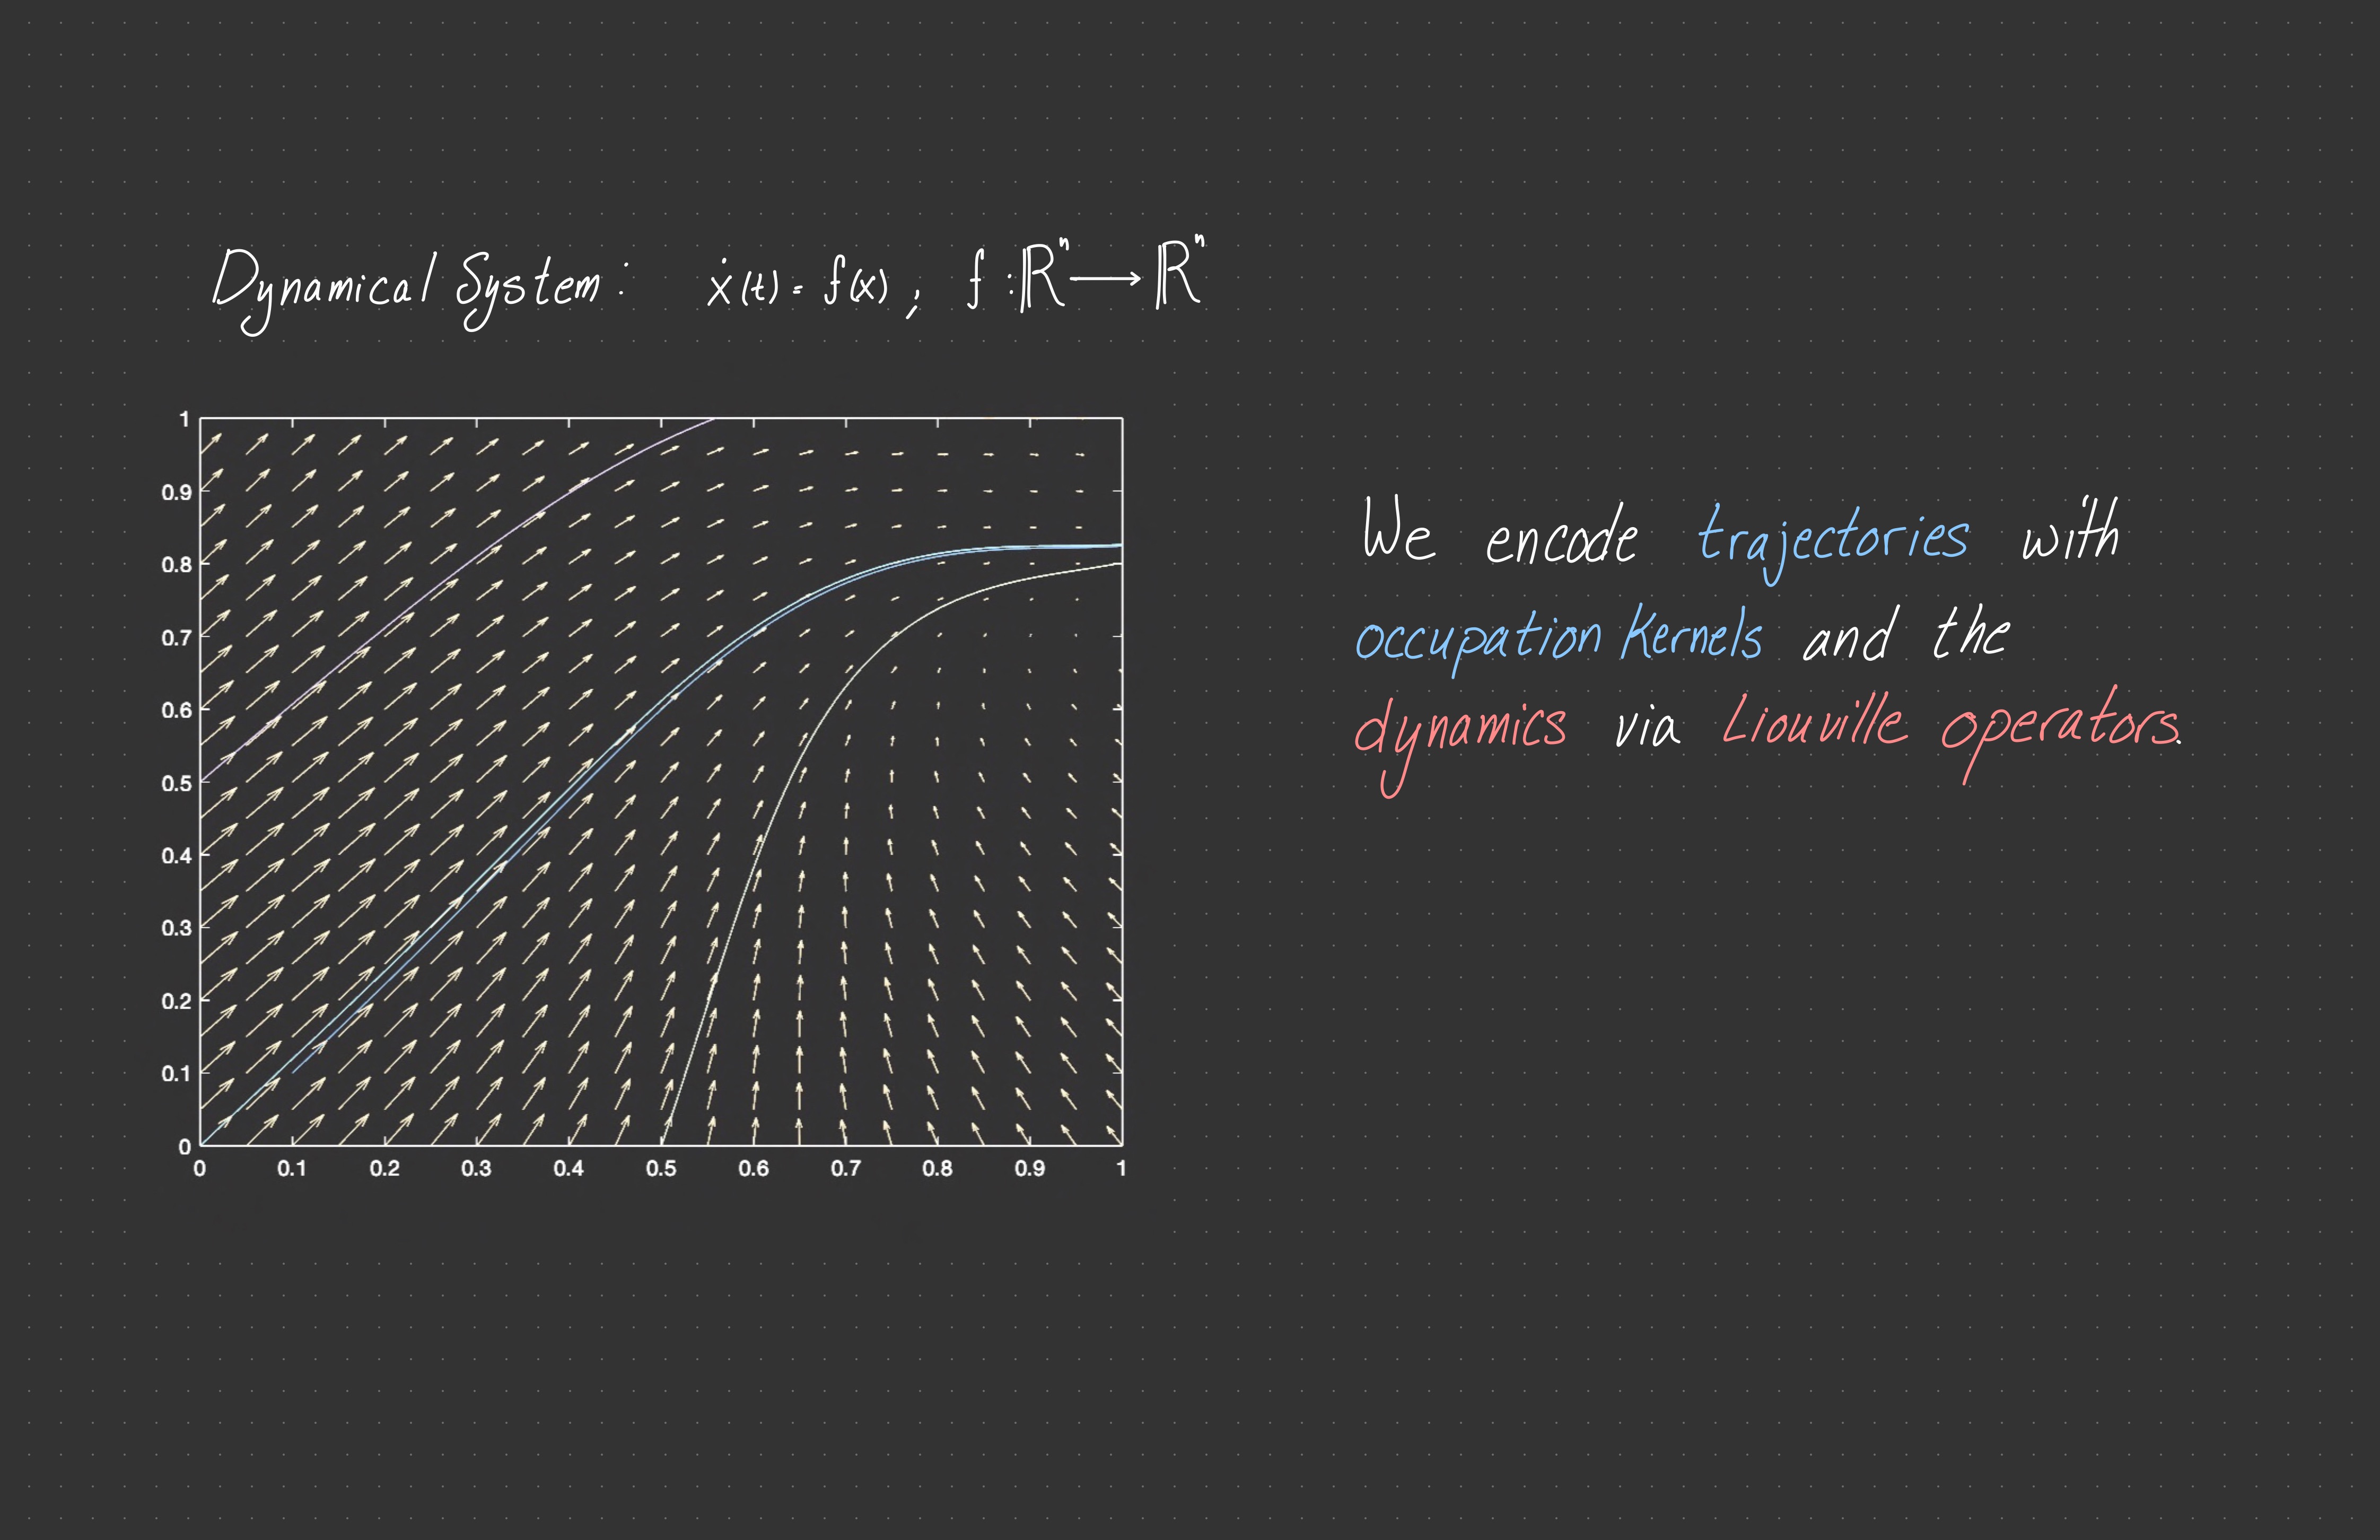 Dynamical System: ẋ(t) = f(x), f: ℝⁿ ⟶ ℝⁿ
1
0.9
0.8
0.7
0.6
0.5
0.4
0.3
0.2
0.1
0
0 0.1 0.2 0.3 0.4 0.5 0.6 0.7 0.8 0.9 1
We encode trajectories with
occupation kernels and the
dynamics via Liouville operators.